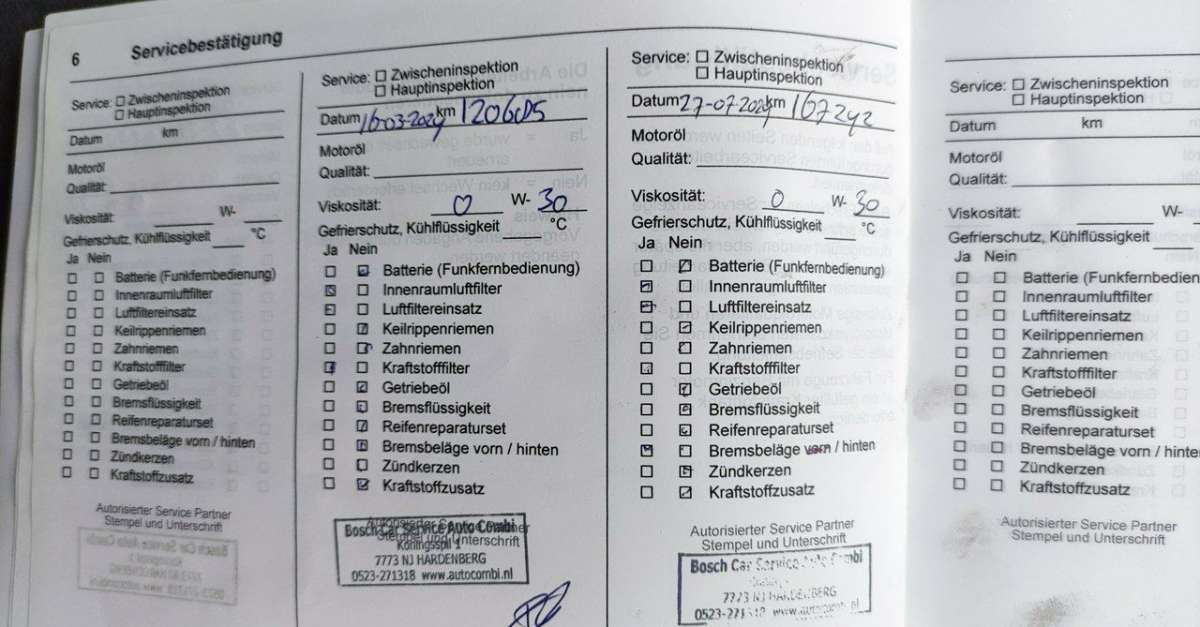 6 Servicebestätigung
Service: Zwischeninspektion
Hauptinspektion
Datum km
Motoröl
Qualität:
Viskosität: W-
Gefrierschutz, Kühlflüssigkeit °C
Ja Nein
Batterie (Funkfernbedienung)
Innenraumluftfilter
Luftfiltereinsatz
Keilrippenriemen
Zahnriemen
Kraftstofffilter
Getriebeöl
Bremsflüssigkeit
Reifenreparaturset
Bremsbeläge vorn / hinten
Zündkerzen
Kraftstoffzusatz
Autorisierter Service Partner
Stempel und Unterschrift
Service: Zwischeninspektion
Hauptinspektion
Datum 16-03-2024 km
Motoröl
Qualität:
Viskosität: 0 W- 30
Gefrierschutz, Kühlflüssigkeit °C
Ja Nein
Batterie (Funkfernbedienung)
Innenraumluftfilter
Luftfiltereinsatz
Keilrippenriemen
Zahnriemen
Kraftstofffilter
Getriebeöl
Bremsflüssigkeit
Reifenreparaturset
Bremsbeläge vorn / hinten
Zündkerzen
Kraftstoffzusatz
Autorisierter Service Partner
Stempel und Unterschrift
Bosch Car Service Auto Combi
Koningsspil 1
7773 NJ HARDENBERG
0523-271318 www.autocombi.nl
Service: Zwischeninspektion
Hauptinspektion
Datum 27-07-2024 km 167242
Motoröl
Qualität:
Viskosität: 0 W- 30
Gefrierschutz, Kühlflüssigkeit °C
Ja Nein
Batterie (Funkfernbedienung)
Innenraumluftfilter
Luftfiltereinsatz
Keilrippenriemen
Zahnriemen
Kraftstofffilter
Getriebeöl
Bremsflüssigkeit
Reifenreparaturset
Bremsbeläge vorn / hinten
Zündkerzen
Kraftstoffzusatz
Autorisierter Service Partner
Stempel und Unterschrift
Bosch Car Service Auto Combi
7773 NJ HARDENBERG
0523-271318 www.autocombi.nl
Service: Zwischeninspektion
Hauptinspektion
Datum km
Motoröl
Qualität:
Viskosität: W-
Gefrierschutz, Kühlflüssigkeit
Ja Nein
Batterie (Funkfernbedien
Innenraumluftfilter
Luftfiltereinsatz
Keilrippenriemen
Zahnriemen
Kraftstofffilter
Getriebeöl
Bremsflüssigkeit
Reifenreparaturset
Bremsbeläge vorn / hinten
Zündkerzen
Kraftstoffzusatz
Autorisierter Service Partner
Stempel und Unterschrift